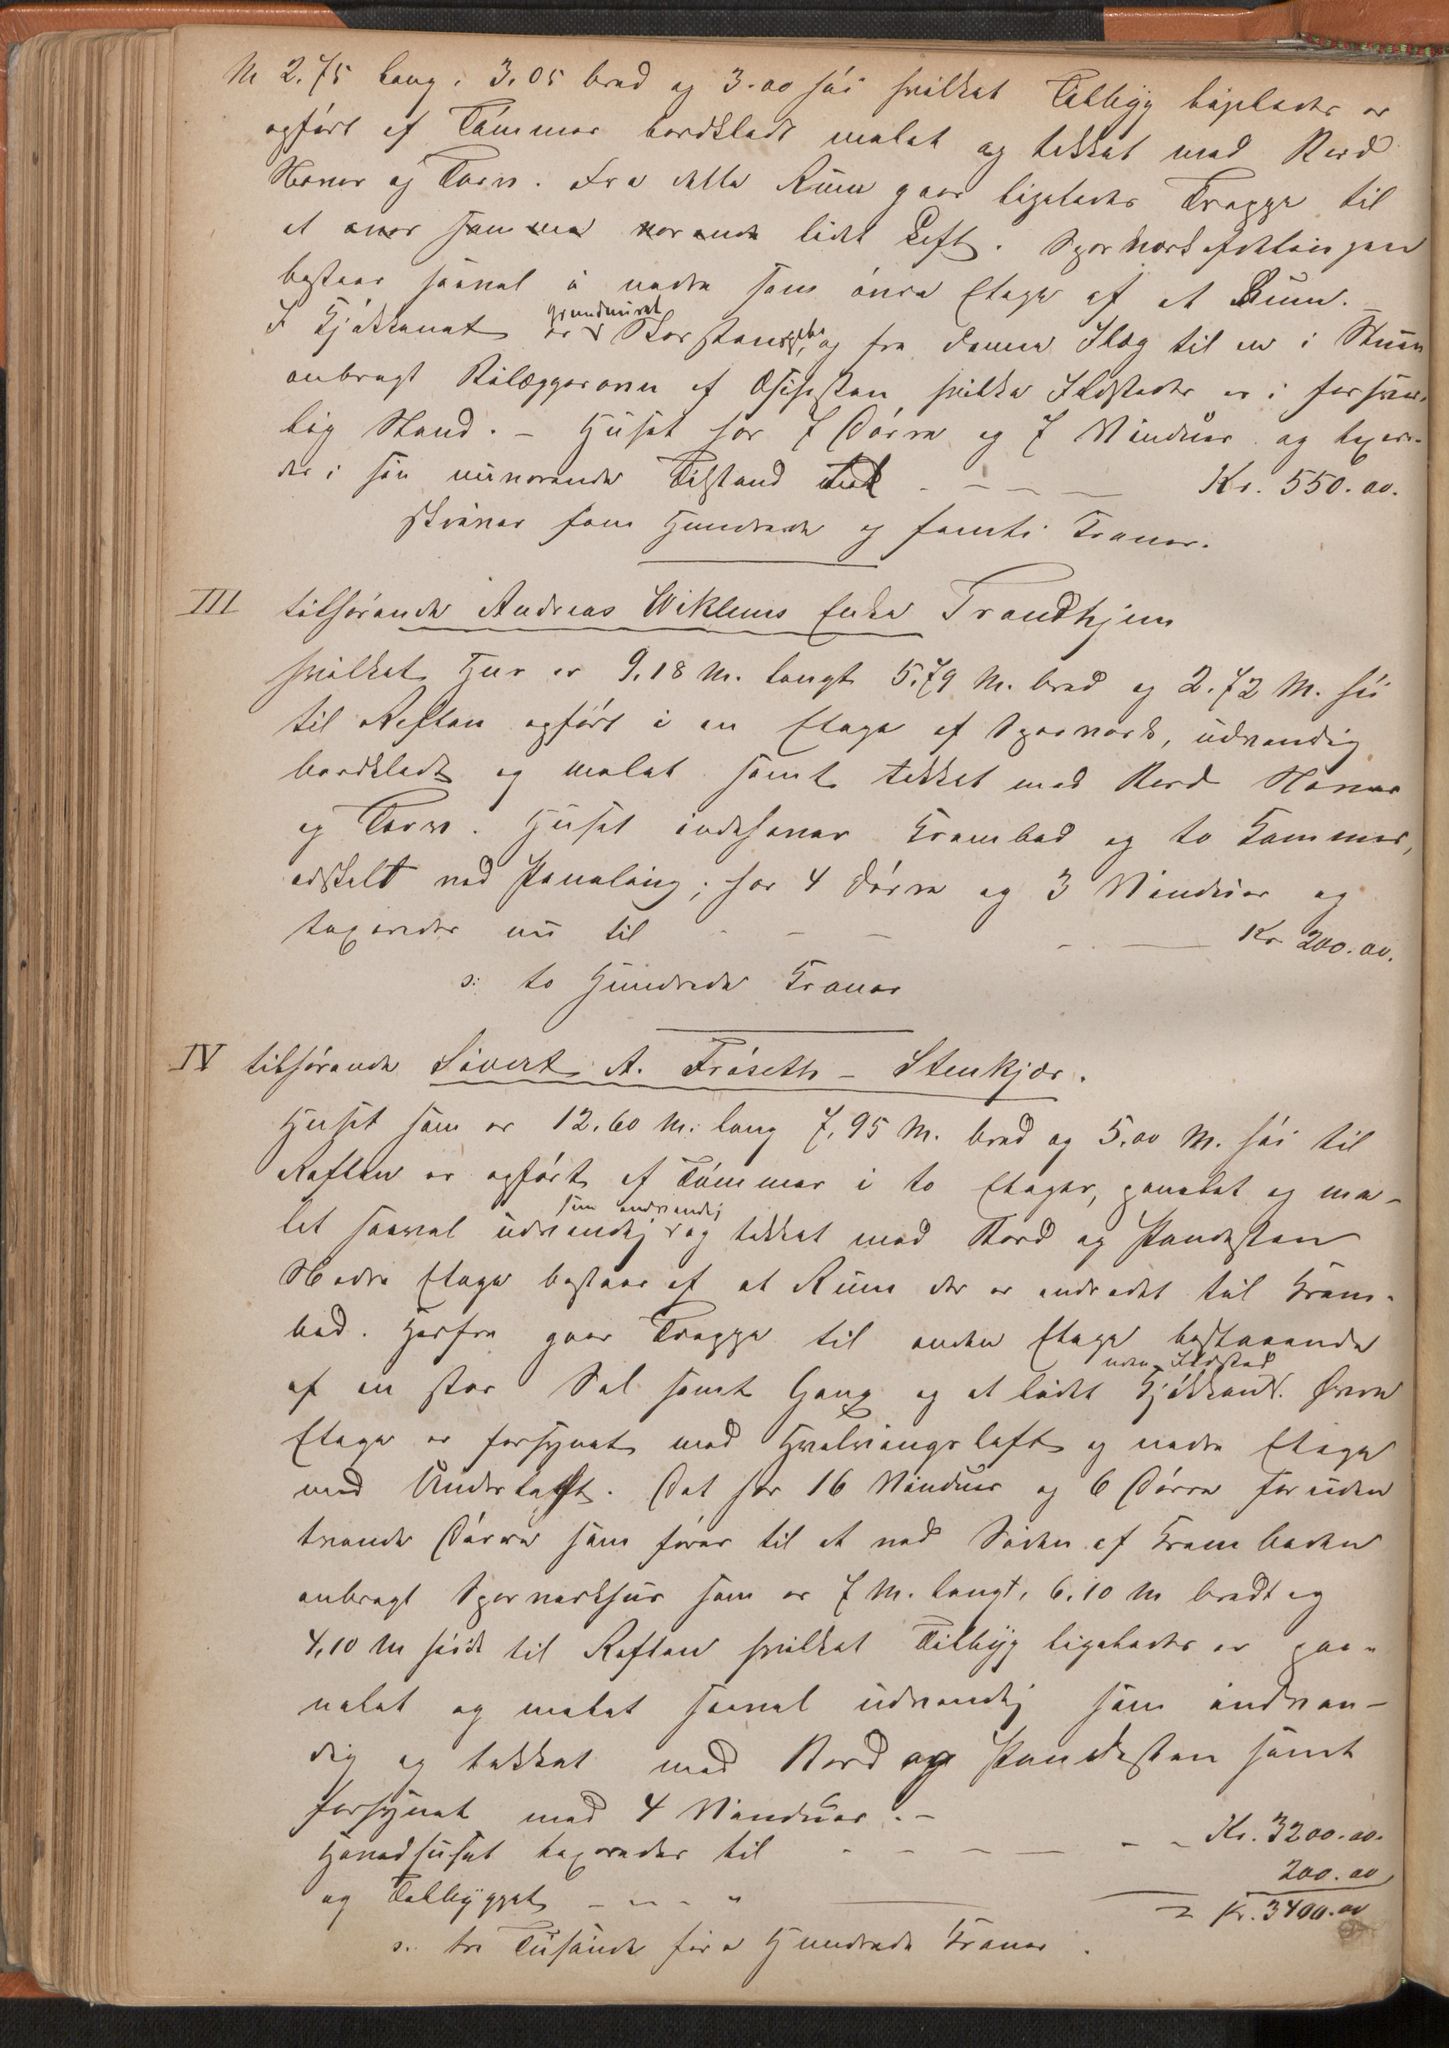 M 2.75 lang, 3.05 bred og 3.00 høi hvilket Tilbyg ligeledes er
opført af Tømmer bordklædt malet og tækket med Bord
Næver og Torv. Fra dette Rum gaar ligeledes Trappe til
et over samme værende lidet Loft. Sperværksafdelingen
bestaar saavel i nedre som øvre Etage af et Rum. –
I Kjøkkenet er grundmuret Skorsten og fra denne Ilæg til en i Stuen
anbragt Bilæggerovn af hvilke Ildsteder er i forsvar-
lig Stand. – Huset har 7 Døre og 7 Vinduer og taxere-
des i sin nuværende Tilstand til . – – – Kr. 550.00.
skriver fem Hundrede og femti Kroner.
III tilhørende Andreas Wiklems Enke Trondhjem
hvilket Hus er 9.18 M. langt 5.79 M. bred og 2.72 M. høi
til Raften opført i en Etage af Sperværk, udvendig
bordklædt og malet samt tækket med Bord Næver
og Torv. Huset indehaver Krambod og to Kammer,
adskelt ved Paneling; har 4 Døre og 3 Vinduer og
taxeredes nu til - – – - — Kr 200.00.
s: to Hundrede Kroner
IV tilhørende Sivert A. Frøseth – Stenkjær.
Huset som er 12.60 M. lang 7,95 M. bred og 5.00 M. høi til
Raften er opført af Tømmer i to Etager, panelet og ma-
let saavel udvendig som indvendig og tækket med Bord og Pandesten
Nedre Etage bestaar af et Rum der er indredet til Kram-
bod. Herfra gaar Trappe til anden Etage bestaaende
af en stor Sal samt Gang og et lidet Kjøkken uden Ildsted. Øvre
Etage er forsynet med Hvelvingsloft og nedre Etage
med Underloft. Det har 16 Vinduer og 6 Døre foruden
tvende Døre som fører til et ved Siden af Kramboden
anbragt Sperverkshus som er 7 M. langt, 6.10 M bredt og
4,10 M høit til Raften hvilket Tilbyg ligeledes er paa-
nelet og malet saavel udvendig som indven-
dig og tækket med Bord og Pandesten samt
forsynet med 4 Vinduer. –
Hovedhuset taxeredes til - – – — - - Kr. 3200.00.
og Tilbygget – „ – „ — 200.00
= Kr. 3400.00
s: tre Tusinde fire Hundrede Kroner.